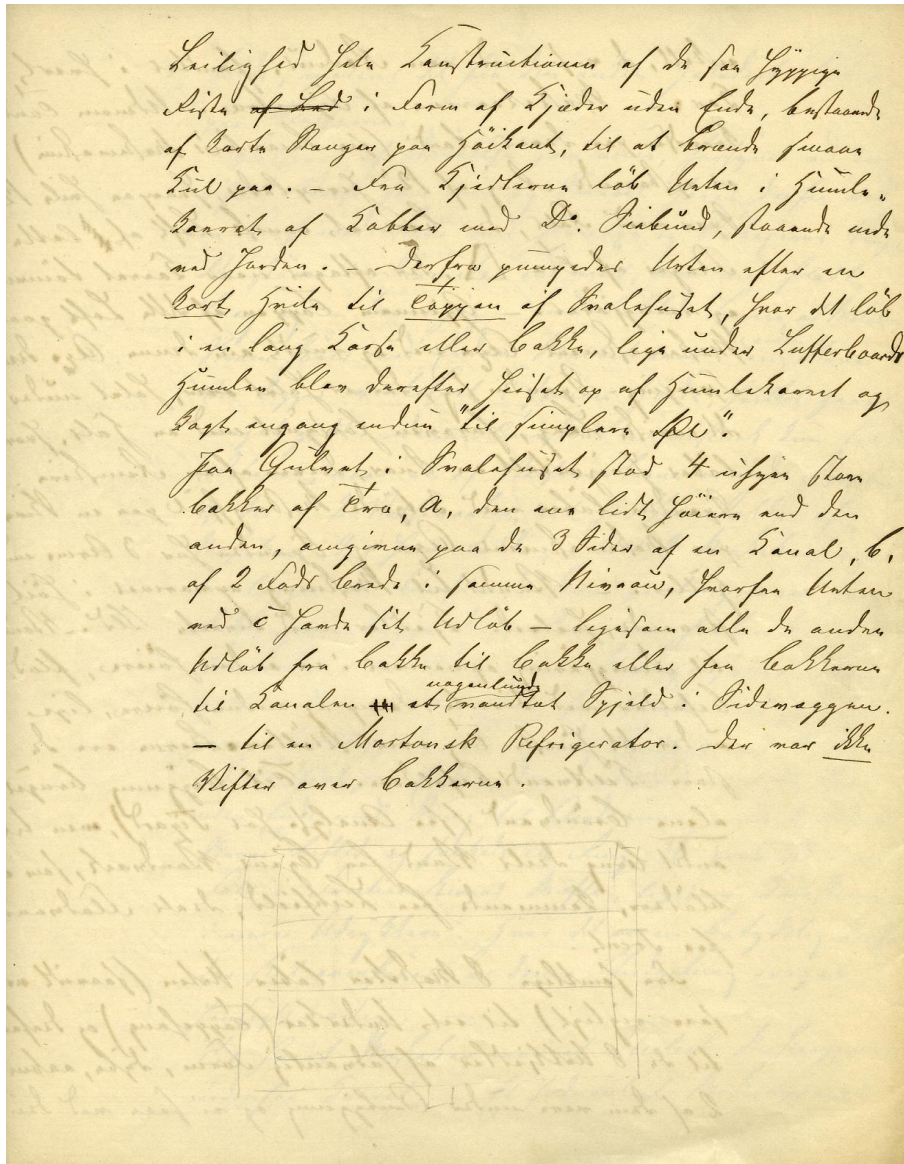 Leilighed hele Constructionen af de saa hyppige
Riste af Led i Form af Kjæder uden Ende, bestaaende
af korte Stanger paa Höikant, til at brænde smaae
Kul paa. – Fra Kjedlerne löb Urten i Humle-
karret af Kobber med Do. Siebund, staaende nede
ved Jorden. – Derfra pumpedes Urten efter en
kort Hvile til Toppen af Svalehuset, hvor det löb
i en lang Kasse eller Bakke, lige under Lufferboards
Humlen blev derefter heiset op af Humlekarret og
kogt engang endnu "til simplere Øl".
Paa Gulvet i Svalehuset stod 4 uhyre store
Bakker af Træ, a, den ene lidt höiere end den
anden, omgivne paa de 3 Sider af en Canal, b,
af 2 Fods Brede i samme Niveau, hvorfra Urten
ved c havde sit Udlöb – ligesom alle de andre
Udlöb fra Bakke til Bakke eller fra Bakkerne
til Canalen et nogenlunde vandtæt Spjeld i Sidevæggen.
– til en Mortonsk Refrigerator. Der var ikke
Vifter over Bakkerne.